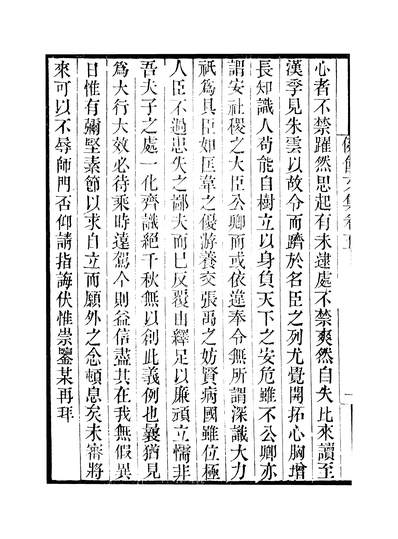 心者不禁躍然思起有未逮處不禁爽然自失比來讀至
漢季見朱雲以故令而躋於名臣之列尤覺開拓心胸增
長知識人苟能自樹立以身負天下之安危雖不公卿亦
謂安社稷之大臣公卿而或依違奉令無所謂深識大力
祇為具臣如匡韋之優游養交張禹之妨賢病國雖位極
人臣不過患失之鄙夫而已反覆紬繹足以廉頑立懦非
吾夫子之處一化齊識絕千秋無以創此義例也曩猶見
為大行大效必待乘時遠駕今則益信盡其在我無假異
日惟有彌堅素節以求自立而願外之念頓息矣未審將
來可以不辱師門否仰請指誨伏惟崇鑒某再拜